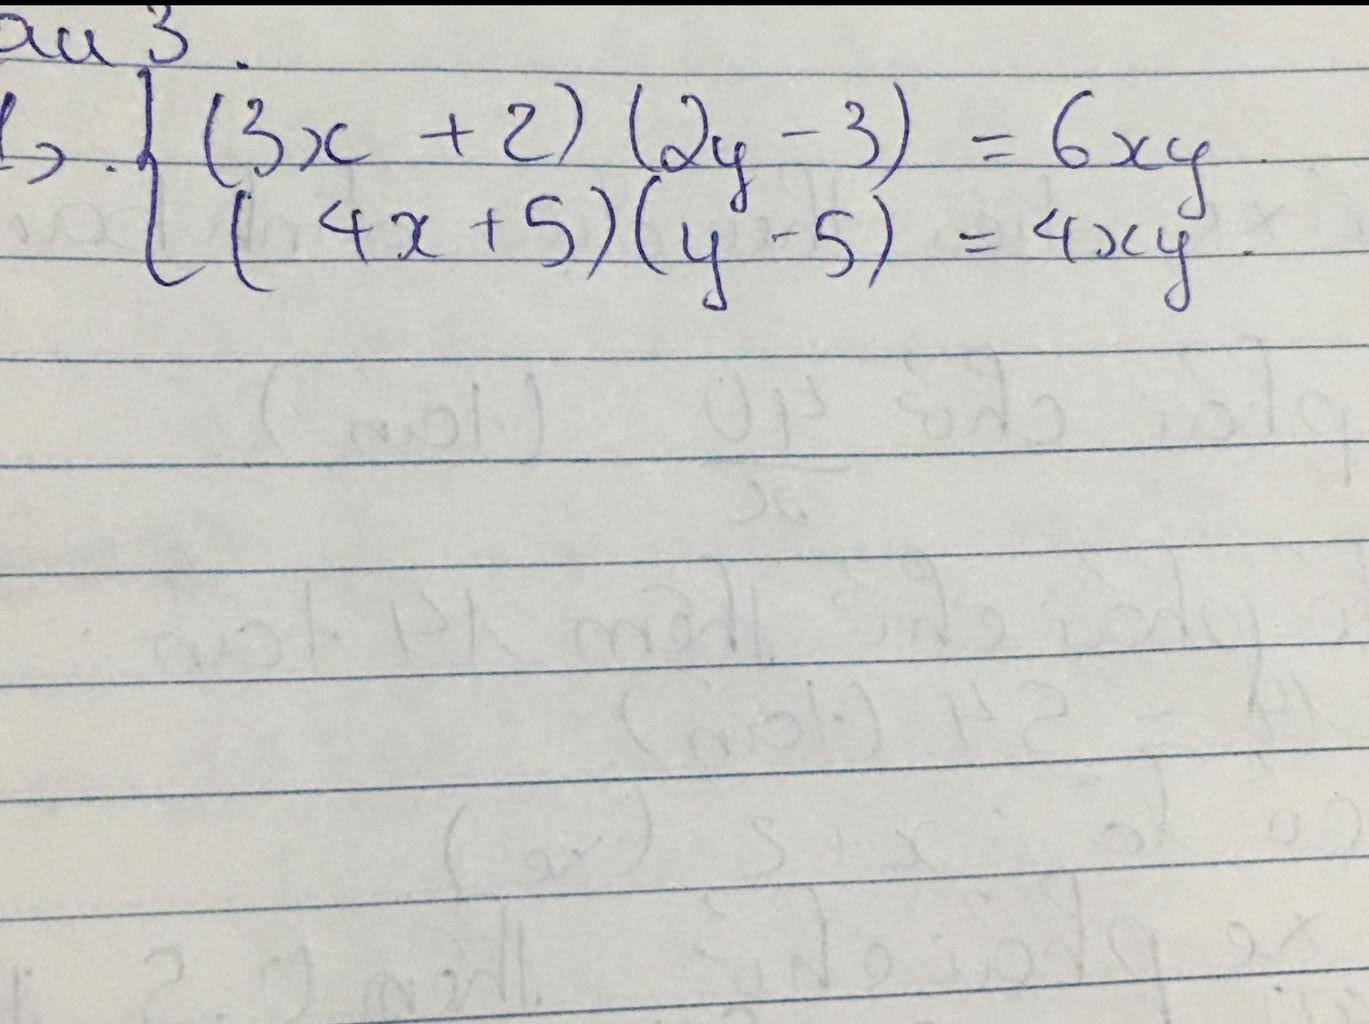 au 3.
1>. { (3x + 2) (2y - 3) = 6xy
(4x + 5)(y - 5) = 4xy.